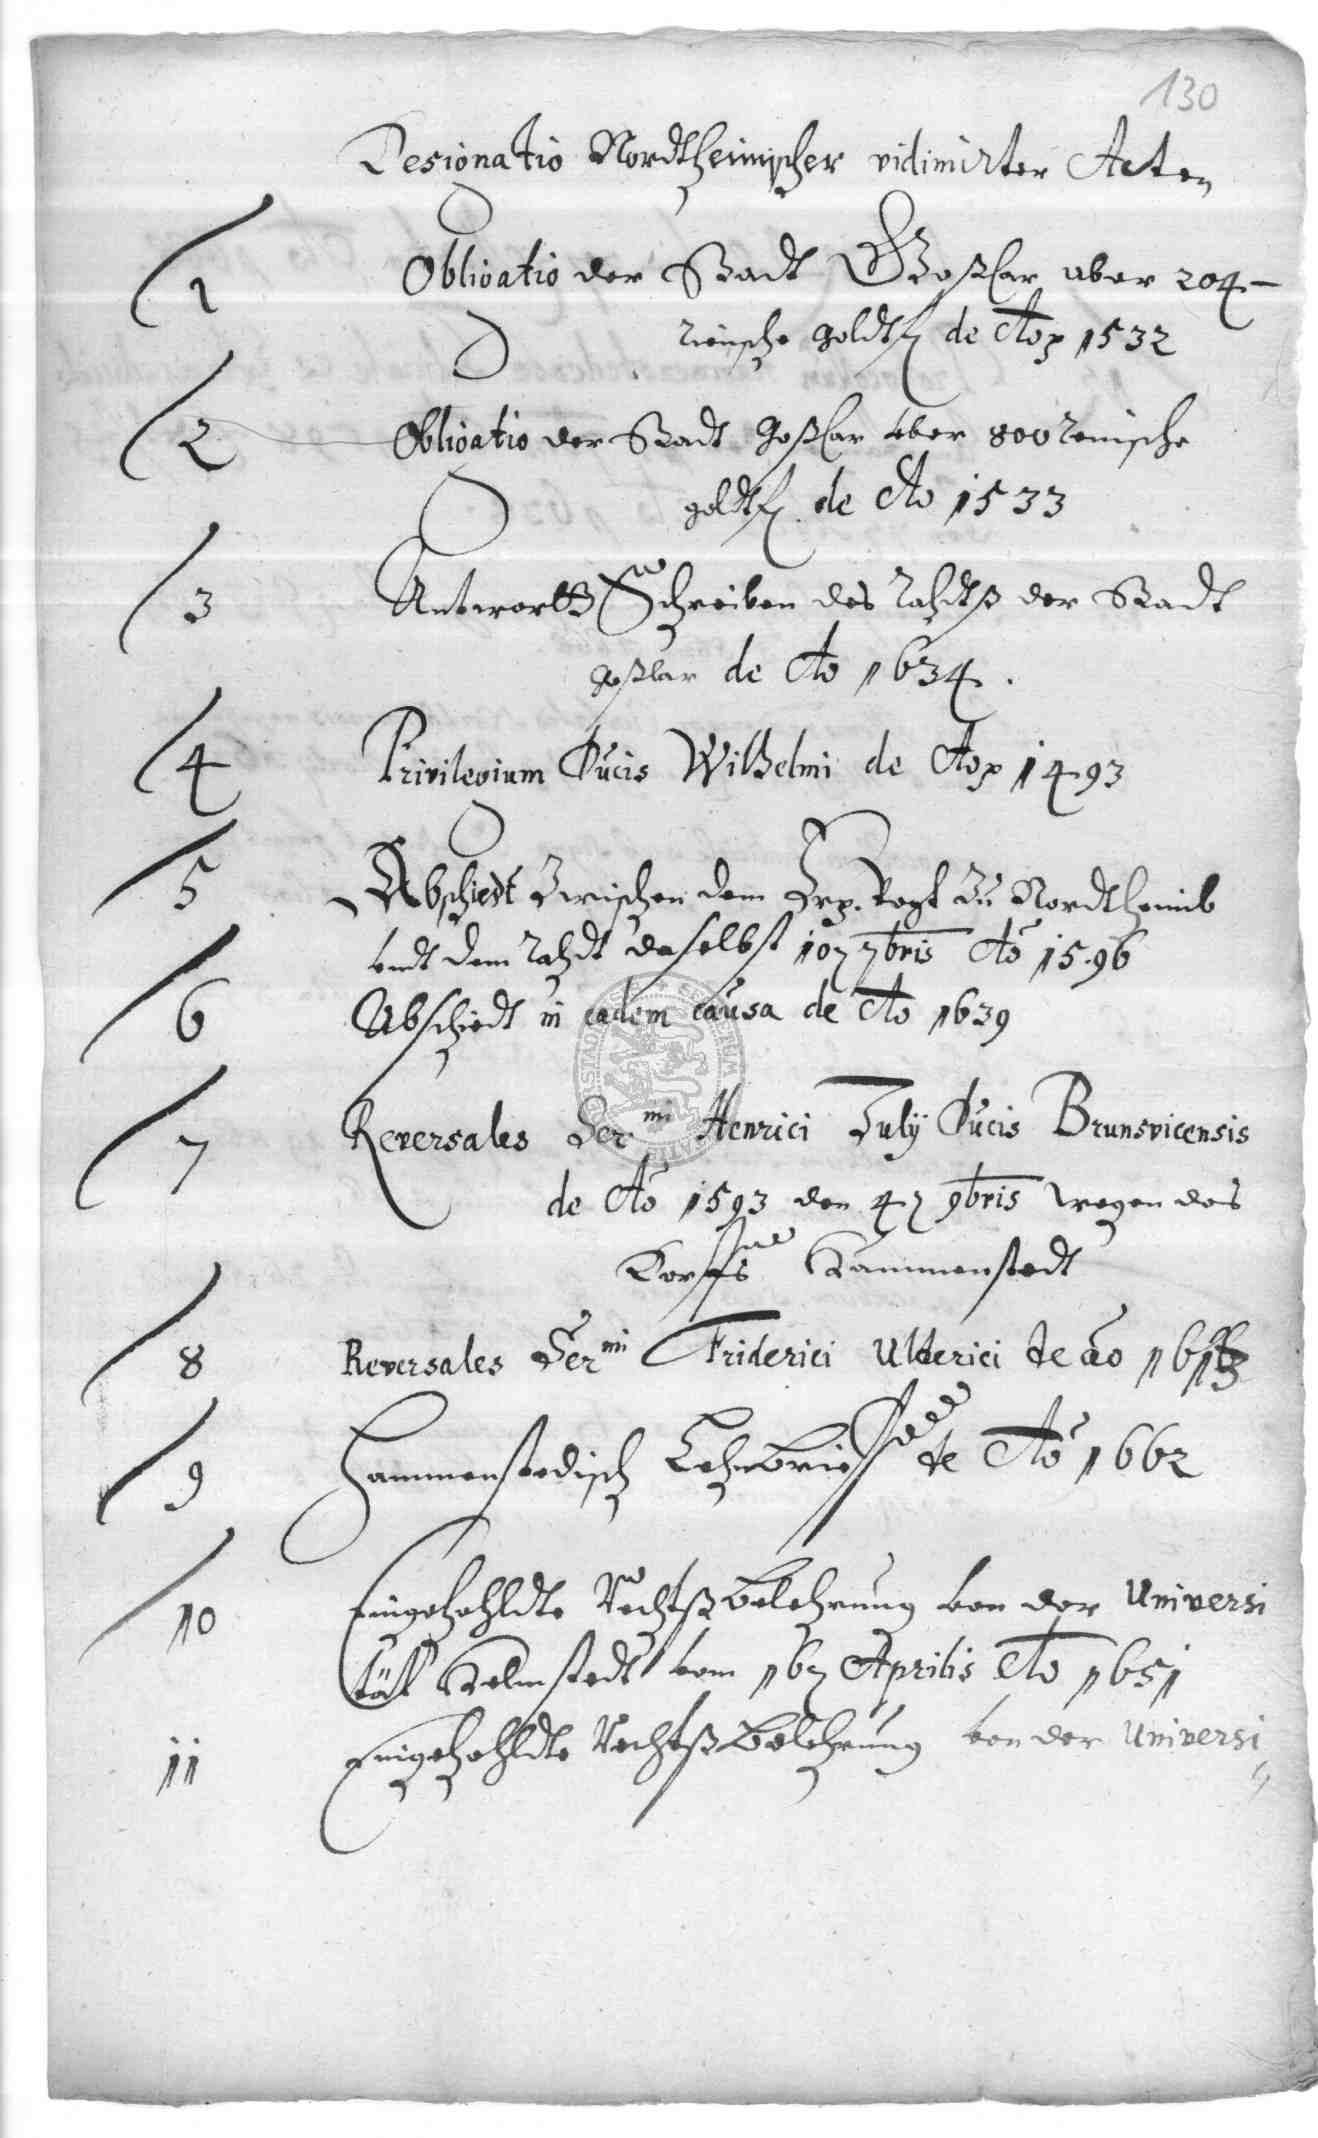 130
Designatio Nordtheimischer vidimirter Acten
1 Obligatio der Stadt Goßlar uber 204
reinsche goldtfl de Ao 1532
2 Obligatio der Stadt Goßlar vber 800 reinische
goldtfl. de Ao 1533
3 Antworts Schreiben des Rahdtß der Stadt
Goßlar de Ao 1634.
4 Privilegium Ducis Wilhelmi de Ao 1493
5 Abschiedt Zwischen dem Vogt Zu Nordtheimb
vndt dem Rahdt daselbst 10 7bris Ao 1596
6 Abschiedt in eadem causa de Ao 1639
7 Reversales Sermi Henrici Julij Ducis Brunsvicensis
de Ao 1593 den 4 9bris wegen des
Dorffs Hammenstedt
8 Reversales Sermi Friderici Ulderici de ao
9 Hammenstedisch Lehnbrieff de Ao 1662
10 Eingehohldte Rechtßbelehrung von der Universi
tät Helmstedt vom 16 Aprilis Ao 1651
11 Eingehohldte Rechtßbelehrung von der Universi